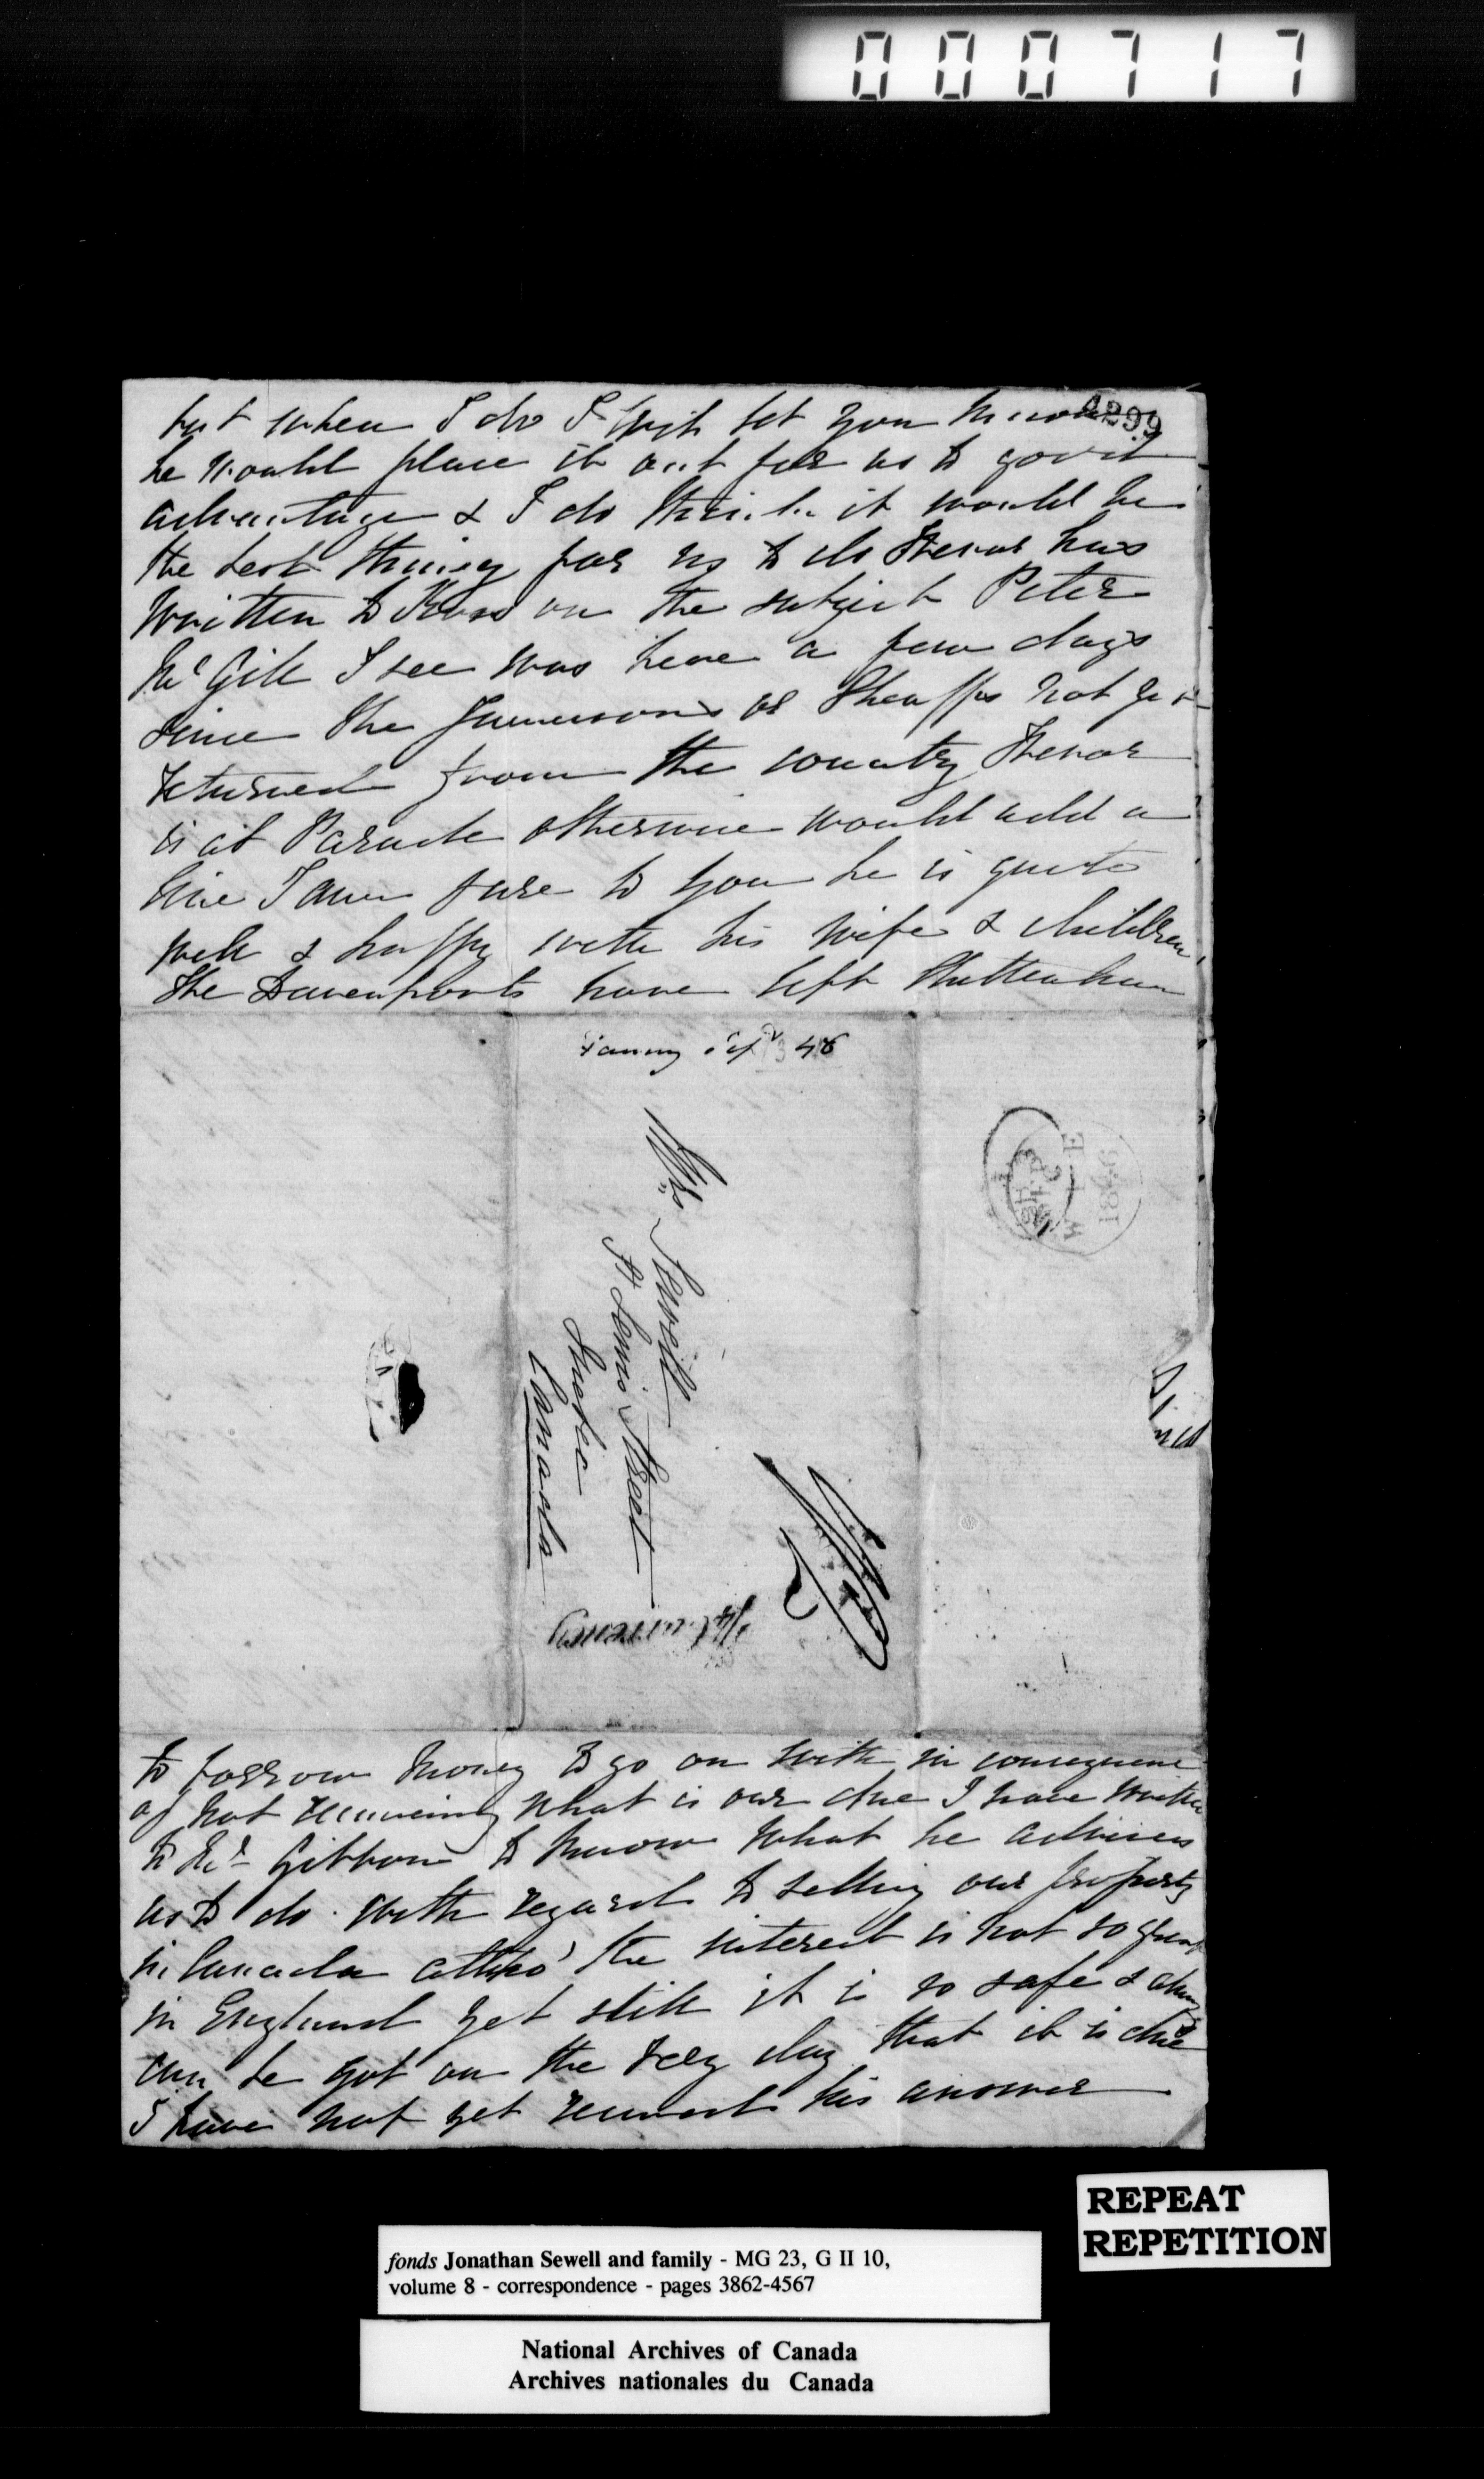 000717
4299
but when I do I will let you know
he would place it out for us to good
advantage & I do think it would be
the best thing for us to do Trevor has
written to Ross on the subject Peter
McGill I see was here a few days
since the Jamesons or Sheaffes not yet
returned from the country Trevor
is at Parade otherwise would add a
line I am sure to you he is quite
well & happy with his wife & children
The Davenports have left Cheltenham
Fanny Sepr 46
Mrs Sewell
St Lewis Street
Quebec
Canada
1846
to borrow money to go on with in consequence
of not receiving what is our due I have written
to Mr Gibbon to know what he advises
us to do with regard to selling our property
in Canada altho' the interest is not so great
in England yet still it is so safe & always
can be got on the very day that it is due
I have not yet received his answer
REPEAT
REPETITION
fonds Jonathan Sewell and family - MG 23, G II 10,
volume 8 - correspondence - pages 3862-4567
National Archives of Canada
Archives nationales du Canada